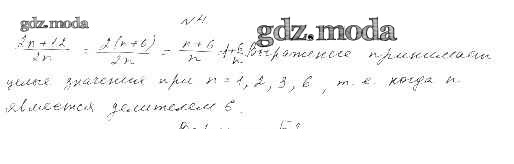 gdz.moda
№4.
gdz.moda
(2n+12)/2n = 2(n+6)/2n = (n+6)/n = 1+6/n Выражение принимает
целые значения при n = 1, 2, 3, 6, т.е. когда n
является делителем 6.